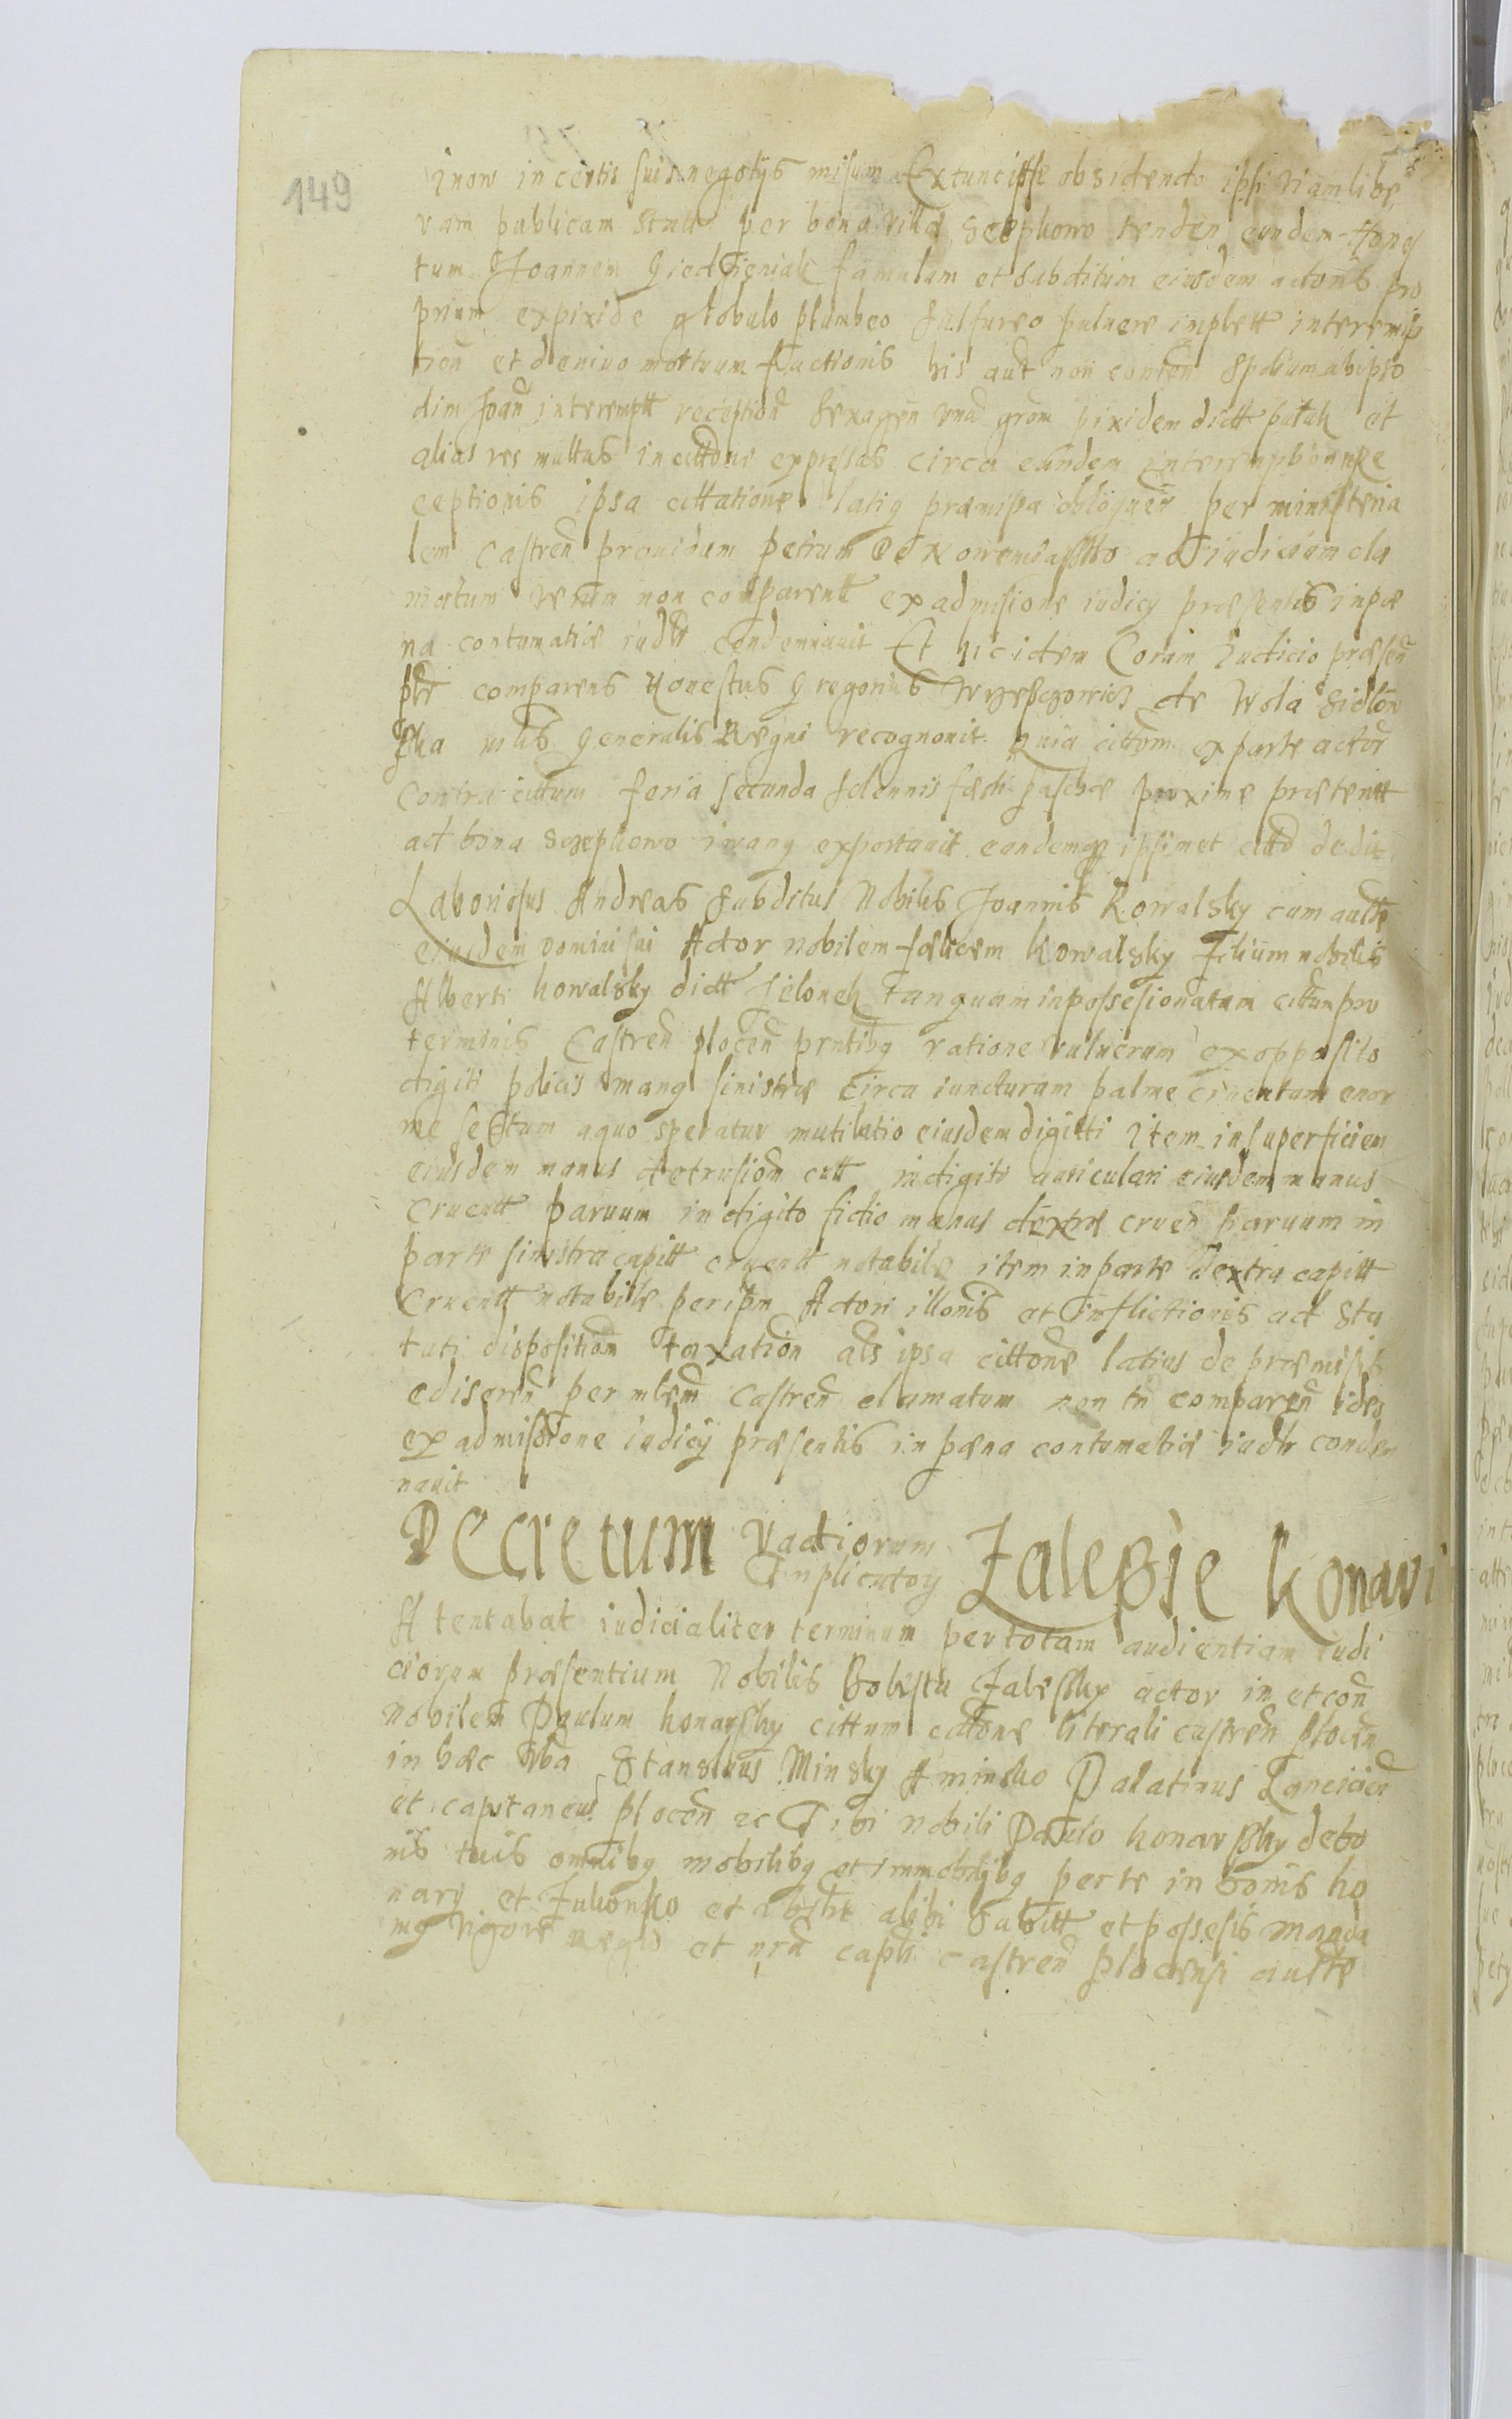 149
in certis suis negotys misum Extunc ipse obsidendo ipsi viam libe
ram publicam stratt per bona villæ Sceplowo tenden eundem Hones
tum Joannem famulum et subditum eiusdem actoris pro
prium expixide globulo plumbeo sulfureo puluere implett interemp
tion et denivo mortuum factionis his aut non conten Spolium ab ipso
dim Joan interemptt reception sexagen una grom pixidem dictt et
alias res multas in cittone expressas circa eundem interemptionem re
ceptionis ipsa cittatione latiq præmissa obloquen per ministeria
lem Castren prouidum petrum de ad iudicium cla
matum verum non comparentt ex admisione iudicy præsentis in pœ
na contumatiæ iudtr condemnauit Et ac idem Coram Iudicio præsen
pltr comparens Honestus Gregorius de Wola
mtis Generalis Regni recognouit quia cittom ex parte actor
contra cittum feria secunda solennis festi paschæ proxime præteritt
ad bona Sczeplowo inang exportauit eandemq ipsimet citto dedit
Laboriosus Andreas subditus Nobilis Joannis Kowalsky cum autte
eiusdem domini sui Actor nobilem fælicem Kowalsky Filium nobilis
Alberti Kowalsky dictt tanquam inpossesionatum cittum pro
terminis Castren plocen prntibq ratione vulnerum ex opposito
digiti policis manq sinistræ circa iuncturam palme cruentum enor
me sectum a quo speratur mutilatio eiusdem digitti Item in superficiem
eiusdem manus detrusiom in digiti auriculari eiusdem manus
cruentt paruum in digito fictio manus dextræ cruen paruum in
parte sinistra capitt cruentt notabile item in parte dextra capitt
Cruentt notabile per ipm Actori illonis et inflictionis ad sta
tuti dispositiom taxation als ipsa cittone latius de præmissis
edisseren per mlem Castren clamatum non tn comparen ideo
ex admissione iudicy præsentis in pæna contumatiæ iudtr condem
nauit
Decretum Vadiorum Inplicatoq Zalesie Konari
Atentabat iudicialiter terminum per totam audientiam iudi
ciorum præsentium Nobilis Zalessky actor in et con
Nobilem Paulum Konarsky cittum cittone literali castren plocen
in hæc vba Stanslaus Minsky A minsko Palatinus Lancicien
et capitaneus plocen ec Tibi Nobili Paulo Konarsky de bo
nis tuis omnibq mobilibq et immobilibq per te in bonis Ko
nary et et alibi habitt et possesis manda
mq vigore regia et nra capli castren plocensi autte